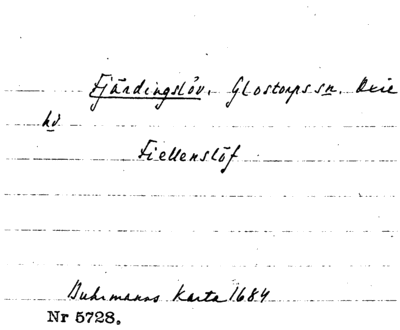 Fjärdingslöv. Glostorps sn. Oxie
hd
Fiellenslöf
Buhrmanns Karta 1684
Nr 5728.